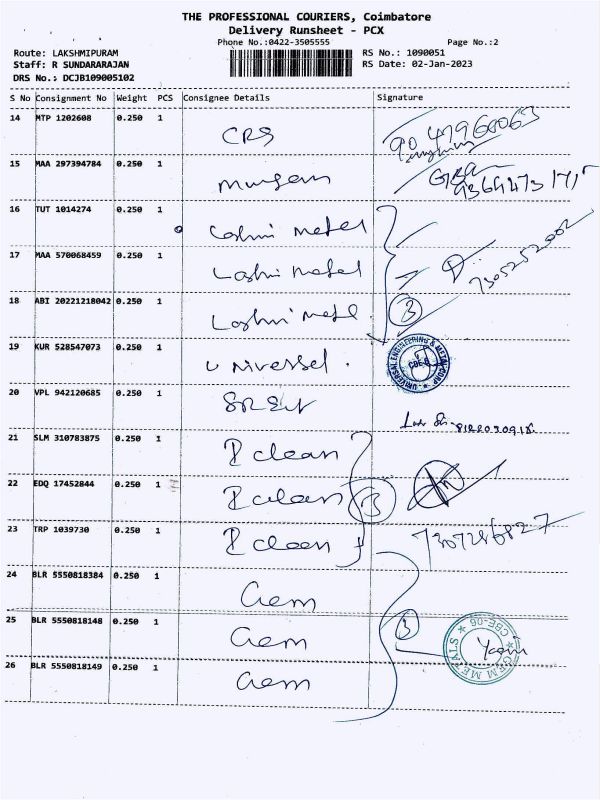 THE PROFESSIONAL COURIERS, Coimbatore
Delivery Runsheet - PCX
Phone No.:0422-3505555 Page No.:2
Route: LAKSHMIPURAM RS No.: 1090051
Staff: R SUNDARARAJAN RS Date: 02-Jan-2023
DRS No.: DCJB109005102
S No Consignment No Weight PCS Consignee Details Signature
14 MTP 1202608 0.250 1 CRS
15 MAA 297394784 0.250 1 Murugan
16 TUT 1014274 0.250 1 Lashmi metal
17 MAA 570068459 0.250 1 Lashmi metal 7305252002
18 ABI 20221218042 0.250 1 Lashmi metal 3
19 KUR 528547073 0.250 1 universel . UNIVERSAL ENGINEERING & METAL CORP CBE-6
20 VPL 942120685 0.250 1
21 SLM 310783875 0.250 1 I clean
22 EDQ 17452844 0.250 1 I clean 3
23 TRP 1039730 0.250 1 I clean 7307286827
24 BLR 5550818384 0.250 1 Gem
25 BLR 5550818148 0.250 1 Gem 3 GEM METALS CBE-06
26 BLR 5550818149 0.250 1 Gem